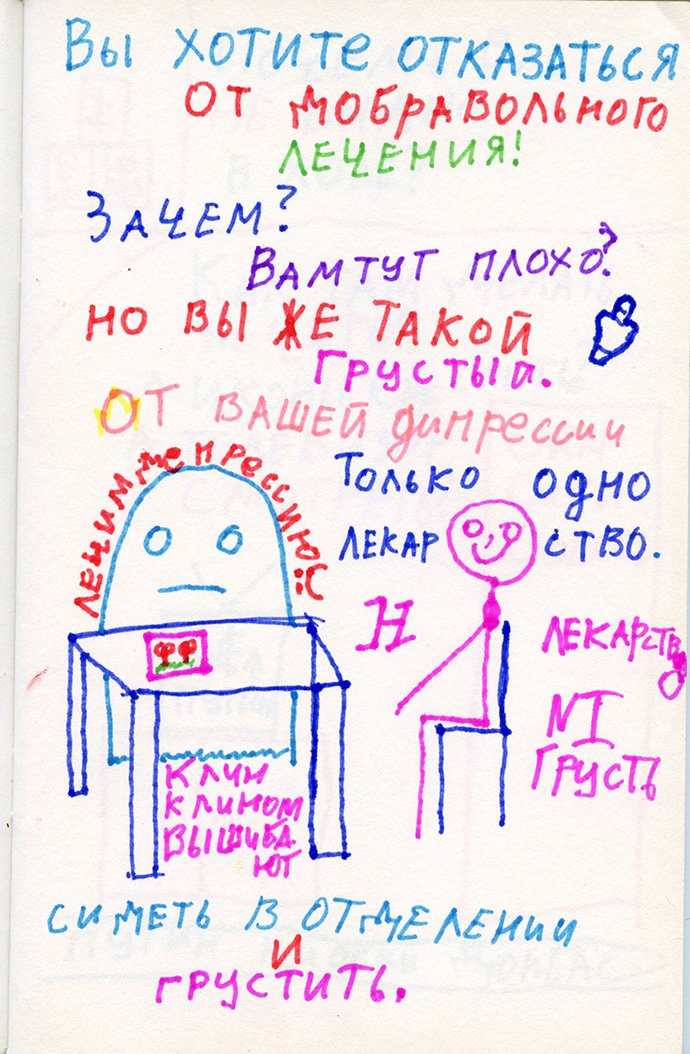 Вы хотите отказаться
от добравольного
лечения!
Зачем?
Вам тут плохо?
Но вы же такой
грустый.
От вашей дипрессии
Только одно
лекарство.
Лечим депрессию :C
Н
лекарство
№1
грусть
Клин
клином
вышиба
ют
сидеть в отделении
и
грустить.